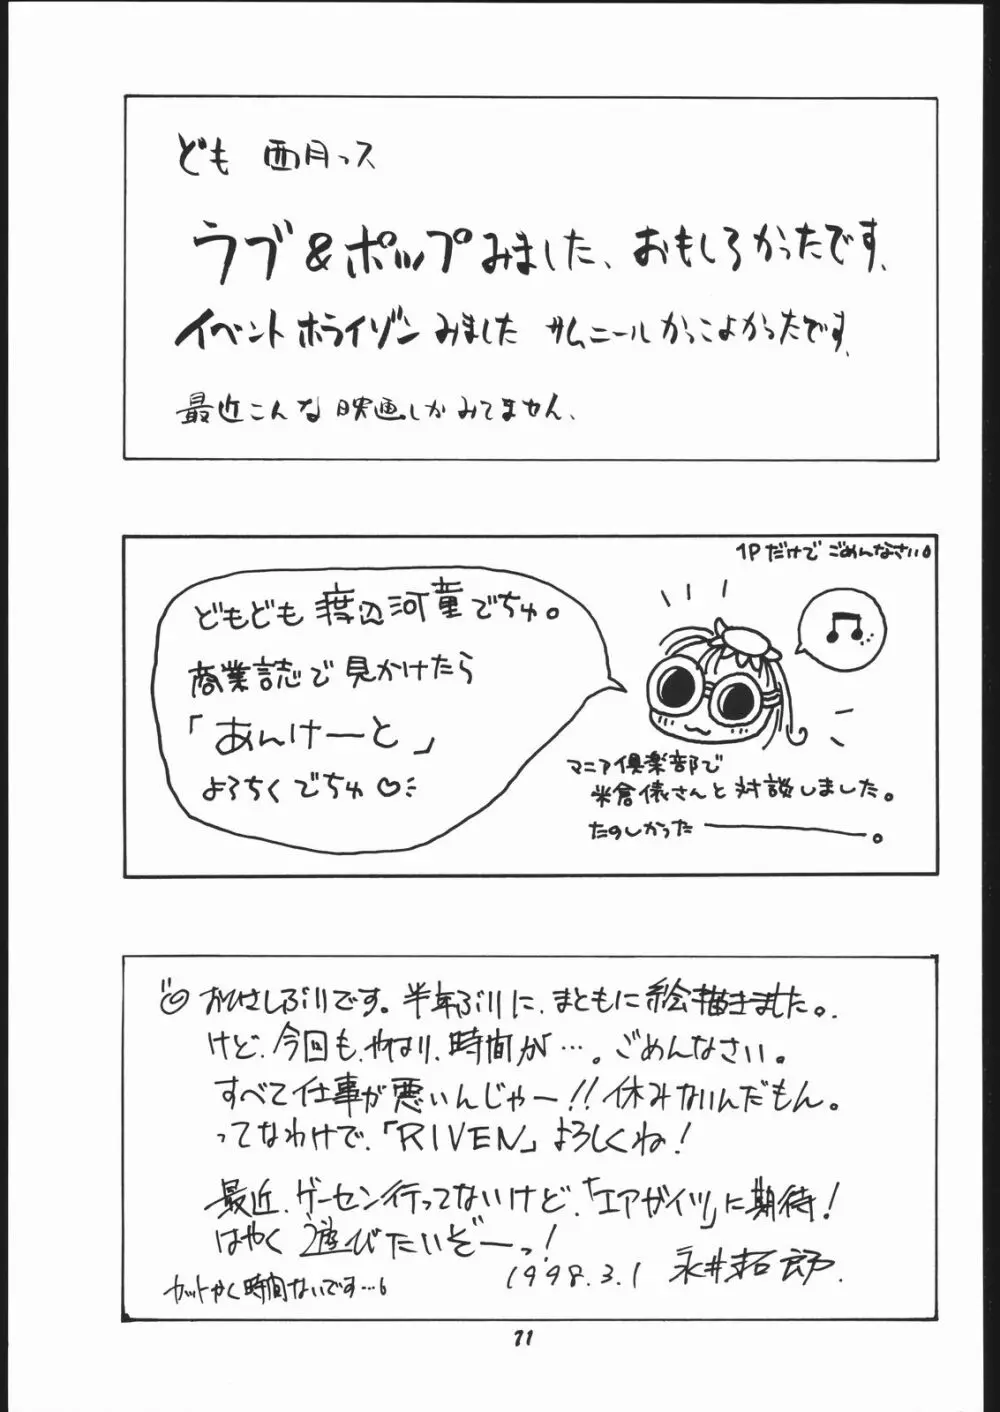 ども 西月っス
ラブ&ポップみました、おもしろかったです、
イベントホライゾンみました サムニールかっこよかったです、
最近こんな映画しかみてません、
1Pだけで ごめんなさい。
どもども 渡辺河童でちゅ。
商業誌で見かけたら
「あんけーと」
よろちくでちゅ♡
マニア倶楽部で
米倉俵さんと対談しました。
たのしかった―――――。
おひさしぶりです。半年ぶりに、まともに絵描きました。
けど、今回も、やはり、時間が…。ごめんなさい。
すべて仕事が悪いんじゃー!!休みないんだもん。
ってなわけで、「RIVEN」よろしくね!
最近、ゲーセン行ってないけど、「エアガイツ」に期待!
はやく遊びたいぞーっ!
1998.3.1 永井拓郎.
カットかく時間ないです…。
71